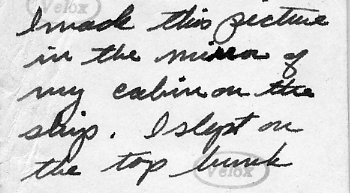 Velox
I made this picture
in the mirror of
my cabin on the
ship. I slept on
the top bunk
Velox